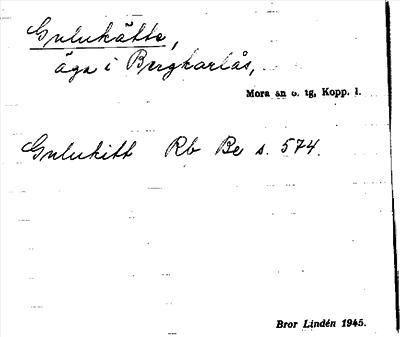 Gulukätte,
äga i Bergkarlås,
Mora sn o. tg, Kopp. l.
Gulukitt Rb Be s. 574.
Bror Lindén 1945.